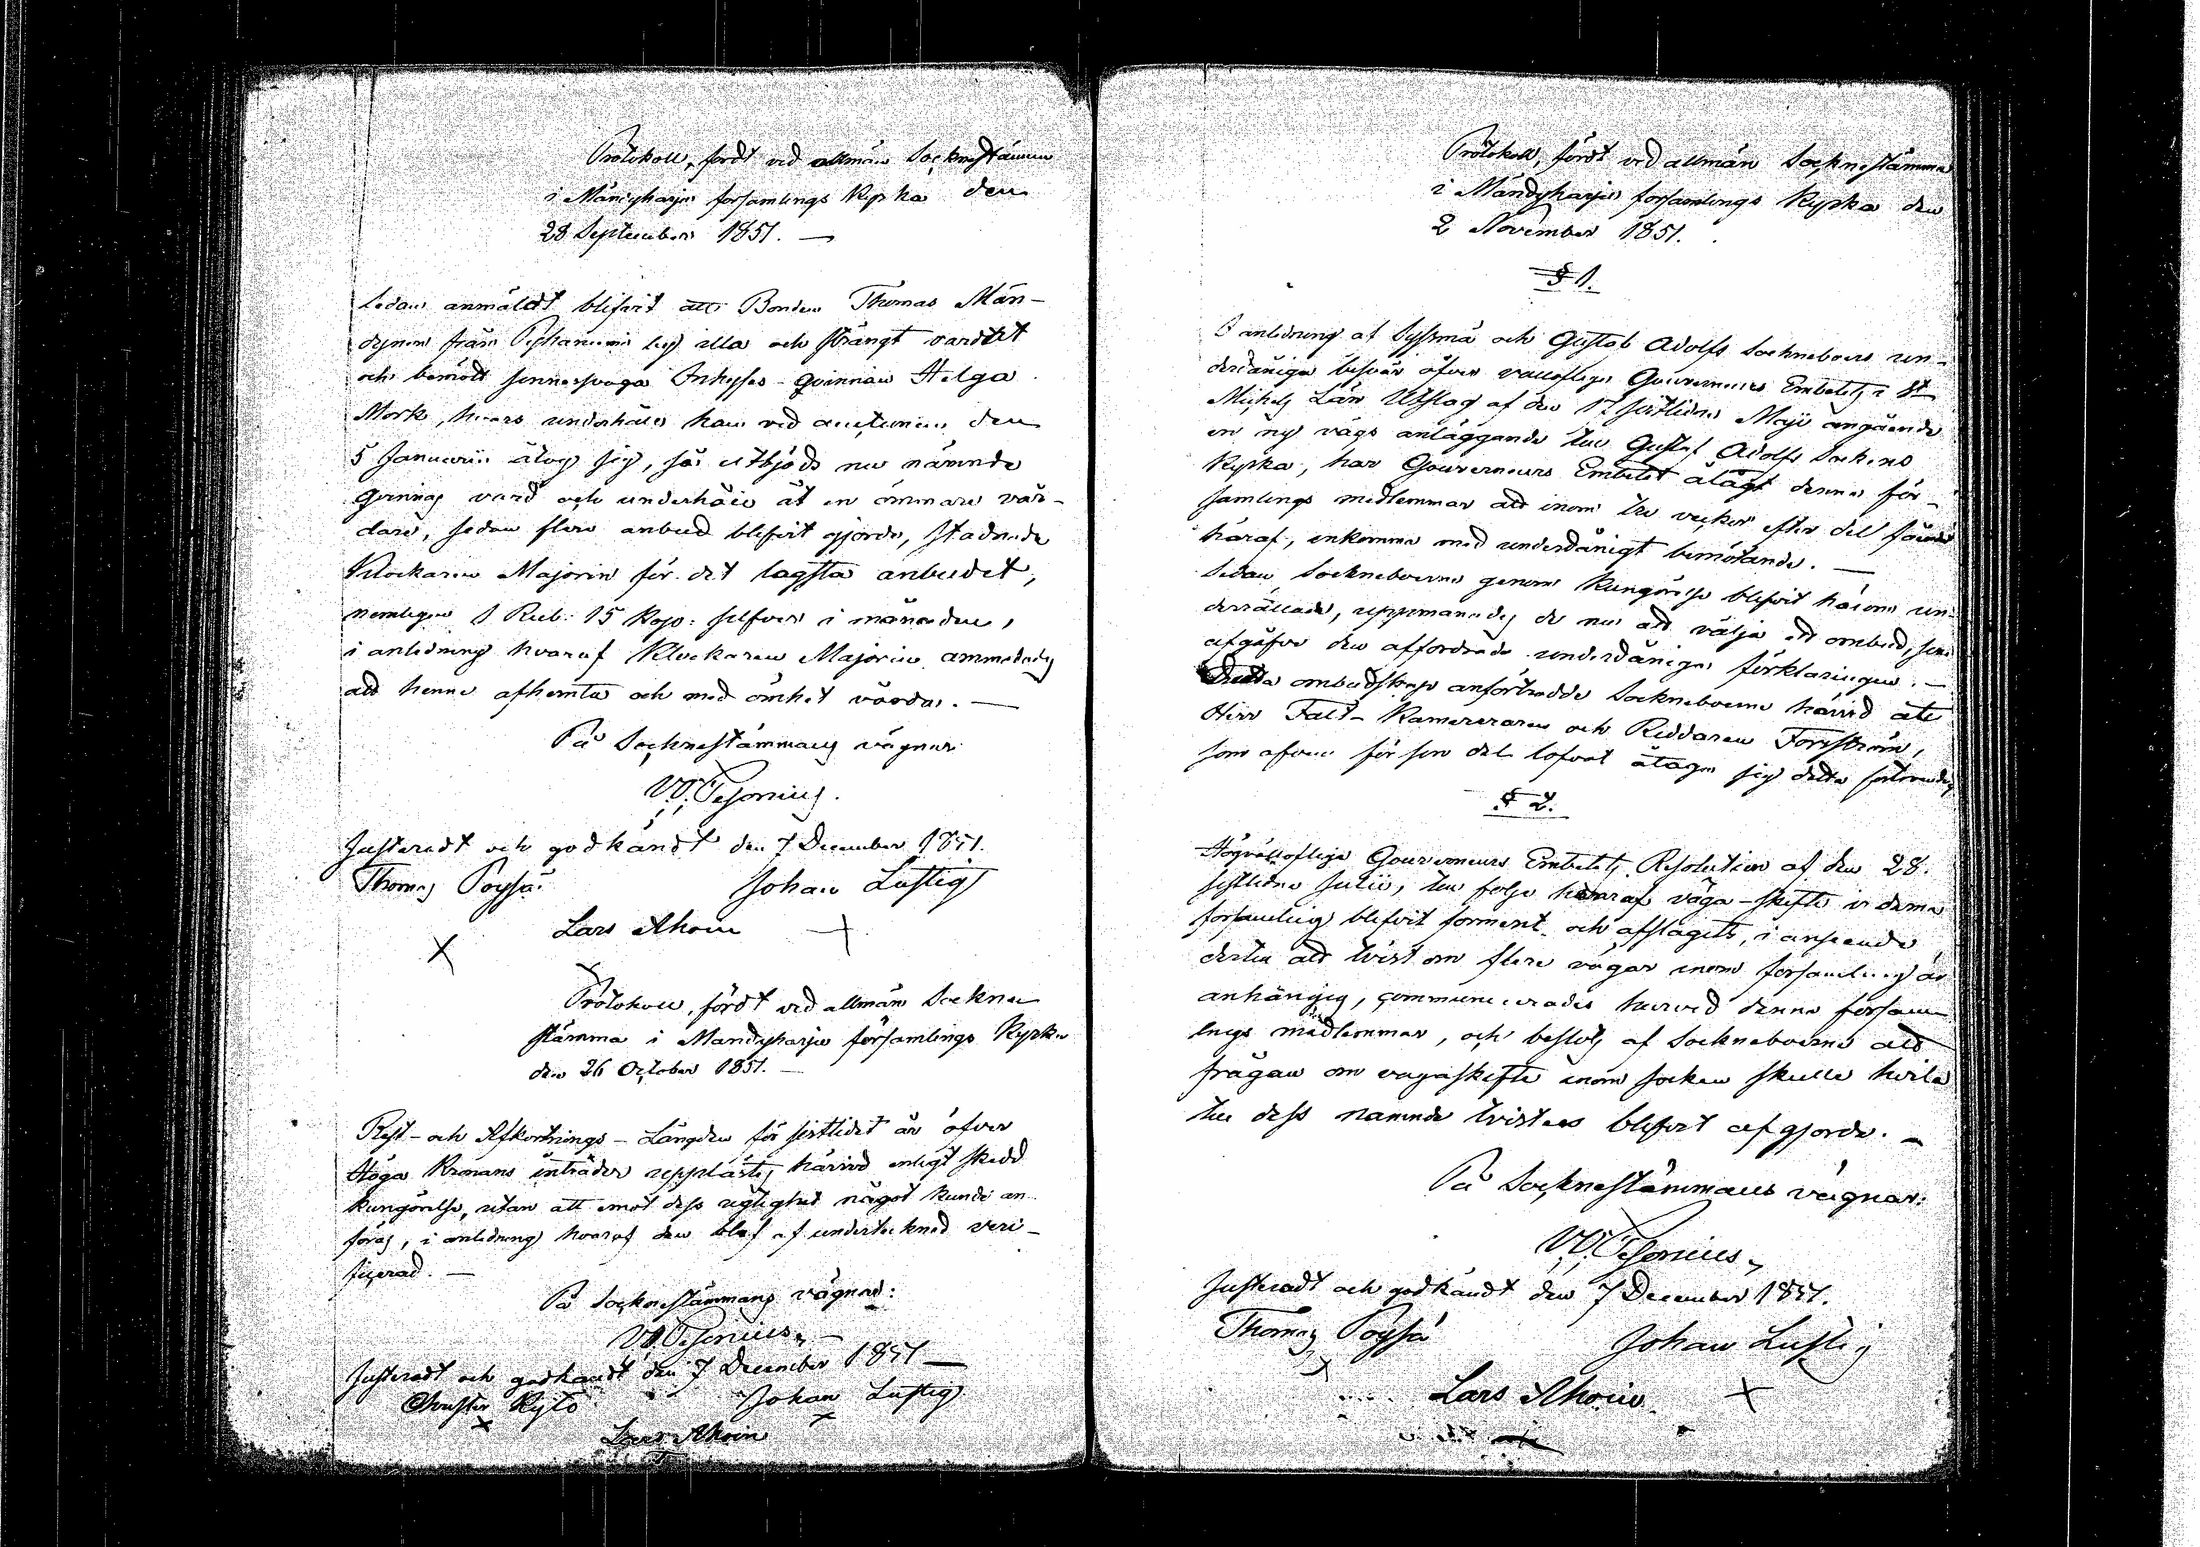 Protokoll, fördt vid allmän Sockenstämma
i Mändyharju församlings Kyrka den
28 September 1851. —
Sedan anmäldt blifvit att Bonden Thomas Män-
dynen från Pyhäniemi sig illa och strängt vardat
och bemött sinnessvaga Inhyses-Qvinnan Helga
Mork, hvars underhåll han vid auctionen den
5 Januarii åtog sig, så utbjöds nu nämnde
Qvinnas vård och underhåll åt en ömmare vår-
dare, sedan flere anbud blifvit gjorde, stadnade
Klockaren Majorin för det lägsta anbudet,
nemligen 1 Rub: 15 Kop: silfver i månaden,
i anledning hvaraf Klockaren Majorin anmodades
att henne afhemta och med ömhet vårda. —
På Socknestämmans vägnar
W. Pesonius.
Justeradt och godkändt den 7 December 1851.
Thomas Poysä Johan Lustig
X Lars Ahoin X
Protokoll, fördt vid allmän Sockne
stämma i Mandyharju församlings Kyrka
den 26 October 1851. —
Rest- och Afkortnings-Längden för sistlidet år öfver
Höga Kronans inträder upplästes härvid enligt skedd
kungörelse, utan att emot dess rigtighet något kunde an-
föras, i anledning hvaraf den blef af undertecknad veri-
ficerad. —
På Socknestämmans vägnar:
W. Pesonius.
Justeradt och godkändt den 7 December 1851 —
Christer Kylö Johan Lustig
X X
Lars Ahoin
Protokoll, fördt vid allmän Socknestämma
i Mändyharju församlings Kyrka den
2 November 1851.
§ 1.
I anledning af Sysmä och Gustaf Adolfs Socknebors un-
derdåniga besvär öfver vällofliga Gouverneurs Embetets i St
Michels Län Utslag af den 17 sistlidne Maji angående
en ny vägs anläggande till Gustaf Adolfs Sockens
Kyrka, har Gouverneurs Embetet ålagt denna för-
samlings medlemmar att inom tre veckor efter del fående
häraf, inkomma med underdånigt bemötande. —
Sedan Sockneboerne genom Kungörelse blifvit härom un-
derrättade, uppmanades de nu att välja ett ombud, som
afgåfve den affordrade underdåniga förklaringen. —
Detta ombudskap anförtrodde Sockneboerne härvid åt
Herr Fält-Kamereraren och Riddaren Forsström,
som äfven för sin del lofvat åtaga sig detta förtroende
§ 2.
Högvällofliga Gouverneurs Embetets Resolution af den 28.
sistledne Julii, till följe hvaraf väga-skifte i denna
församling blifvit forment och afslagits, i anseende
dertill att tvist om flere vägar inom församling är
anhängig, communicerades härvid denna försam
lings medlemmar, och beslöts af Socknboerne att
frågan om vägaskifte inom socken skulle hvila
till dess nämnde tvister blifvit afgjorda. —
På Socknestämmans vägnar:
W. Pesonius.
Justeradt och godkändt den 7 December 1851.
Thomas Poysä Johan Lustig
X Lars Ahoin X